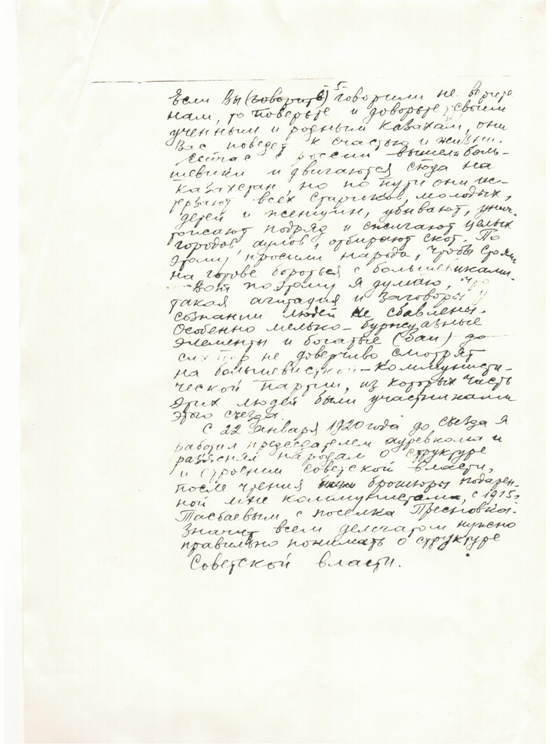 -5-
Если Вы (говорить) говорили не верите
нам, то поверьте и доверьте своим
ученным и родным казахам, они
Вас поведет к счастью и жизни.
Сейчас в россии вышели боль-
шевики и двигаются сюда на
казахстан, но по пути они ис-
терзают всех стариков, молодых,
дерей и женщин, убывают, унич-
тожают подряд и сжигают целых
городов аулов, отбирают скот. По
этому просили народа, чтобы стояли
на готове бороться с большевиками.
Вот поэтому я думаю, что
такая агитация и заговоры у
сознании людей не сбавлены.
Особенно мелько-буржуазные
элементы и богатые (баи) до
сих пор не доверчиво смотрят
на большевистской-коммунисти-
ческой партии, из которых часть
этих людей были участниками
этого съезда.
С 22 января 1920 года до съезда я
работал председателем ауревкома и
разяснял народам о структуре
и строении Советской власти,
после чтения брошюры подарен-
ной мне коммунистом, с 1915г.
Тасбаевым с поселка Пресновка.
Значит всем делегатом нужно
правильно понимать о структуре
Советской власти.